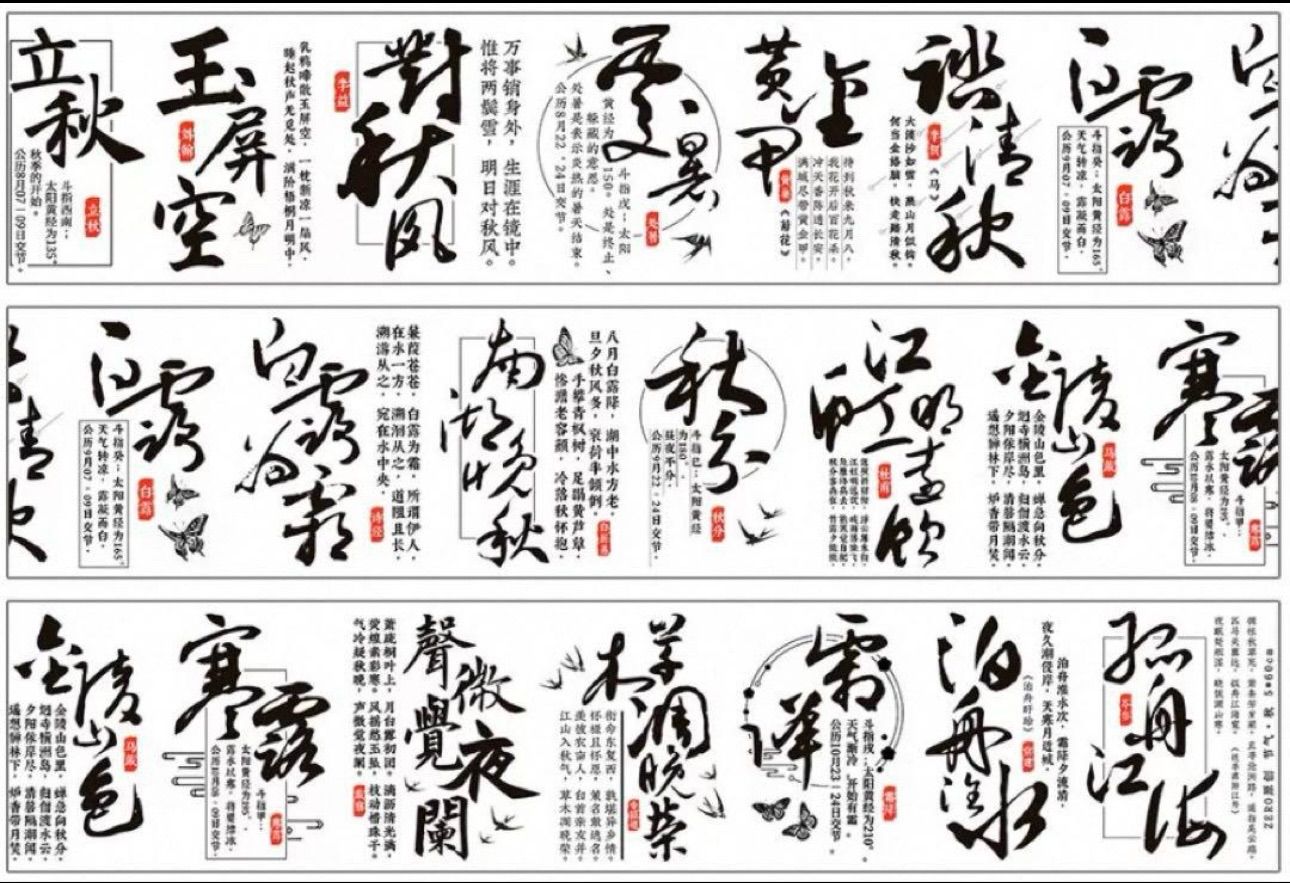 立秋
斗指西南;
太阳黄经为135°。
秋季的开始。
公历8月07|09日交节。
立秋
玉屏空
刘翰
乳鸦啼散玉屏空,一枕新凉一扇风。
睡起秋声无觅处,满阶梧桐月明中。
對秋风
李益
万事销身外,生涯在镜中。
惟将两鬓雪,明日对秋风。
处暑
斗指戊;太阳
黄经为150°。处是终止、
躲藏的意思。
处暑是表示炎热的暑天结束。
公历8月22|24日交节。
处暑
黄金甲
黄巢
《菊花》
待到秋来九月八,
我花开后百花杀。
冲天香阵透长安,
满城尽带黄金甲。
踏清秋
李贺
《马》
大漠沙如雪,燕山月似钩。
何当金络脑,快走踏清秋。
白露
斗指癸;太阳黄经为165°
天气转凉,露凝而白,
公历9月07|09日交节。
白露
白
为
清
秋
白露
斗指癸;太阳黄经为165°
天气转凉,露凝而白,
公历9月07|09日交节。
白露
白露为霜
蒹葭苍苍,白露为霜,所谓伊人,
在水一方,溯洄从之,道阻且长,
溯游从之,宛在水中央,
诗经
南湖晚秋
八月白露降,湖中水方老。
旦夕秋风多,衰荷半倾倒。
手攀青枫树,足蹋黄芦草,
惨澹老容颜,冷落秋怀抱,
白居易
秋分
斗指已;太阳黄经
为180°。
昼夜不分,
公历9月22|24日交节。
秋分
杜甫
金陵山色
马戴
金陵山色里,蝉急向秋分。
迥寺横洲岛,归僧渡水云。
夕阳依岸尽,清磬隔潮闻。
遥想禅林下,炉香带月焚。
寒露
斗指甲;
太阳黄经为195°。
露水以寒,将要结冰,
公历10月08|09日交节。
寒露
金陵山色
马戴
金陵山色里,蝉急向秋分。
迥寺横洲岛,归僧渡水云。
夕阳依岸尽,清磬隔潮闻。
遥想禅林下,炉香带月焚。
寒露
斗指甲;
太阳黄经为195°。
露水以寒,将要结冰,
公历10月08|09日交节。
寒露
聲微覺夜闌
萧疏桐叶上,月白露初团。滴沥清光满,
荧煌素彩寒。风摇愁玉坠,枝动惜珠干。
气冷疑秋晚,声微觉夜阑。
木草凋晚荣
衔命东复西,孰堪异乡情。
怀禄且怀恩,策名敢逃名。
羡彼农亩人,白首亲友并。
江山入秋气,草木凋晚荣。
霜降
斗指戌;太阳黄经为210°。
天气渐冷,开始有霜。
公历10月23|24日交节。
霜降
泊舟淮水
泊舟淮水次,霜降夕流清,
夜久潮侵岸,天寒月近城,
《泊舟盱眙》
常建
孤舟江海
岑参